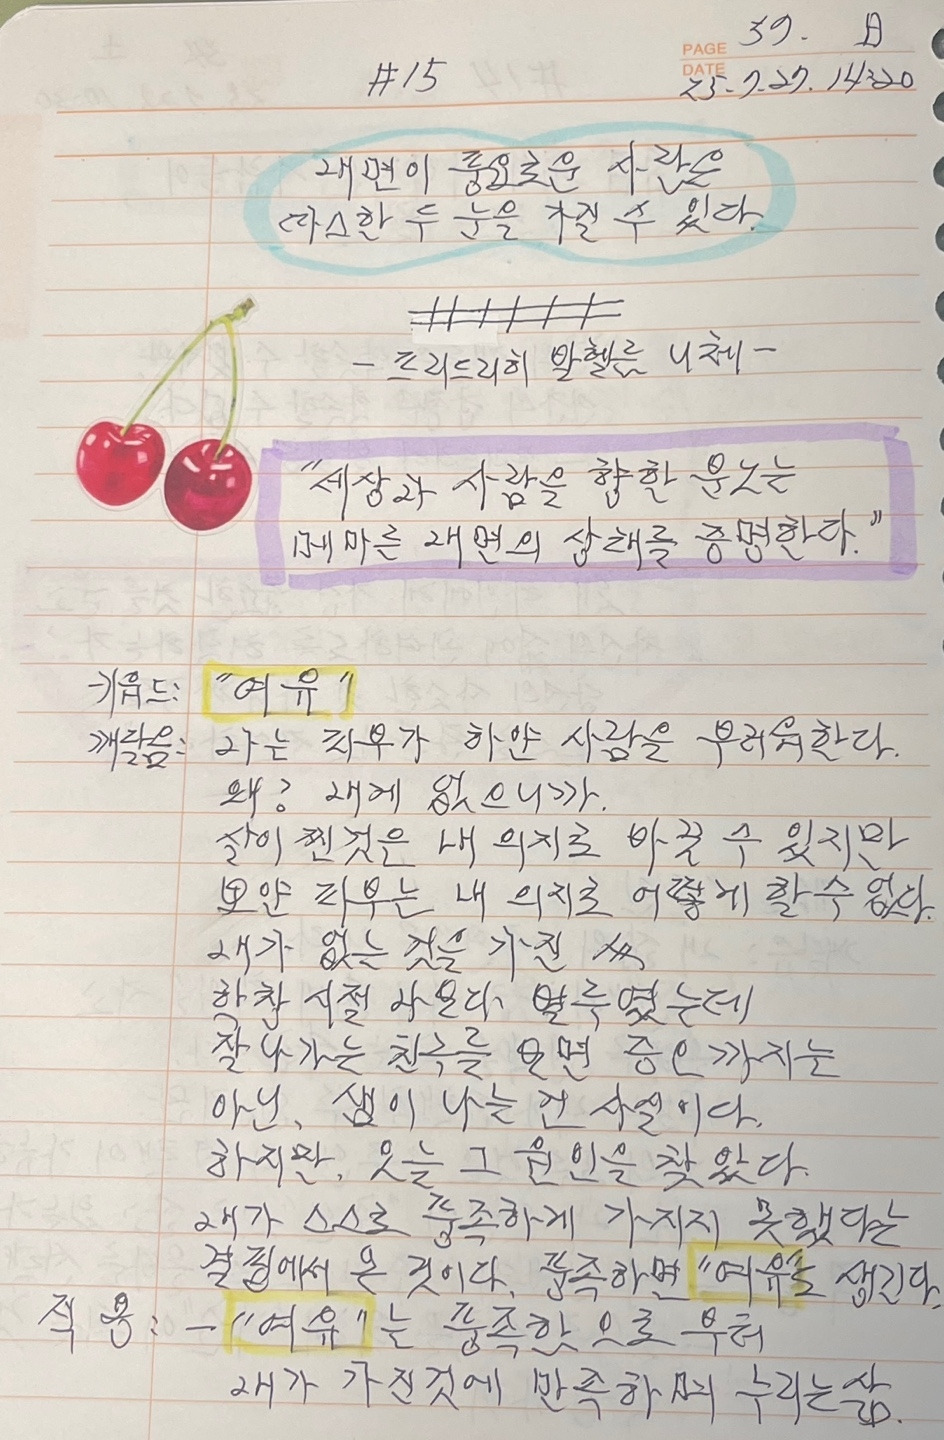 PAGE 39. 日
DATE 25.7.27. 14:20
#15
내면이 풍요로운 사람은
따스한 두 눈을 가질 수 있다.
- 프리드리히 빌헬름 니체 -
"세상과 사람을 향한 분노는
메마른 내면의 상태를 증명한다."
키워드: "여유"
깨달음: 나는 피부가 하얀 사람을 부러워한다.
왜? 내게 없으니까.
살이 찐것은 내 의지로 바꿀 수 있지만
뽀얀 피부는 내 의지로 어떻게 할 수 없다.
내가 없는 것을 가진
한창 시절 나보다 였는데
잘 나가는 친구를 보면 증오까지는
아닌, 샘이 나는 건 사실이다.
하지만, 오늘 그 원인을 찾았다.
내가 스스로 풍족하게 가지지 못했다는
결핍에서 온 것이다. 풍족하면 "여유"도 생긴다.
적용: - "여유"는 풍족함으로 부터
내가 가진것에 만족하며 누리는 삶.